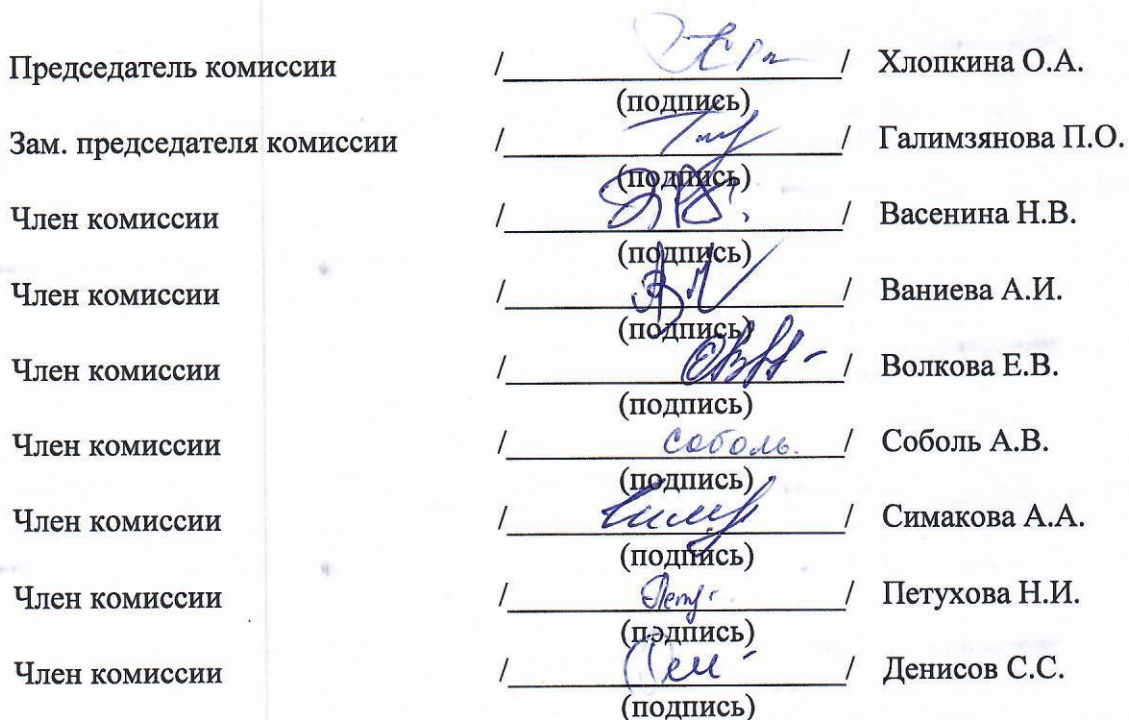 Председатель комиссии / / Хлопкина О.А.
(подпись)
Зам. председателя комиссии / / Галимзянова П.О.
(подпись)
Член комиссии / / Васенина Н.В.
(подпись)
Член комиссии / / Ваниева А.И.
(подпись)
Член комиссии / / Волкова Е.В.
(подпись)
Член комиссии / Соболь. / Соболь А.В.
(подпись)
Член комиссии / / Симакова А.А.
(подпись)
Член комиссии / / Петухова Н.И.
(подпись)
Член комиссии / / Денисов С.С.
(подпись)